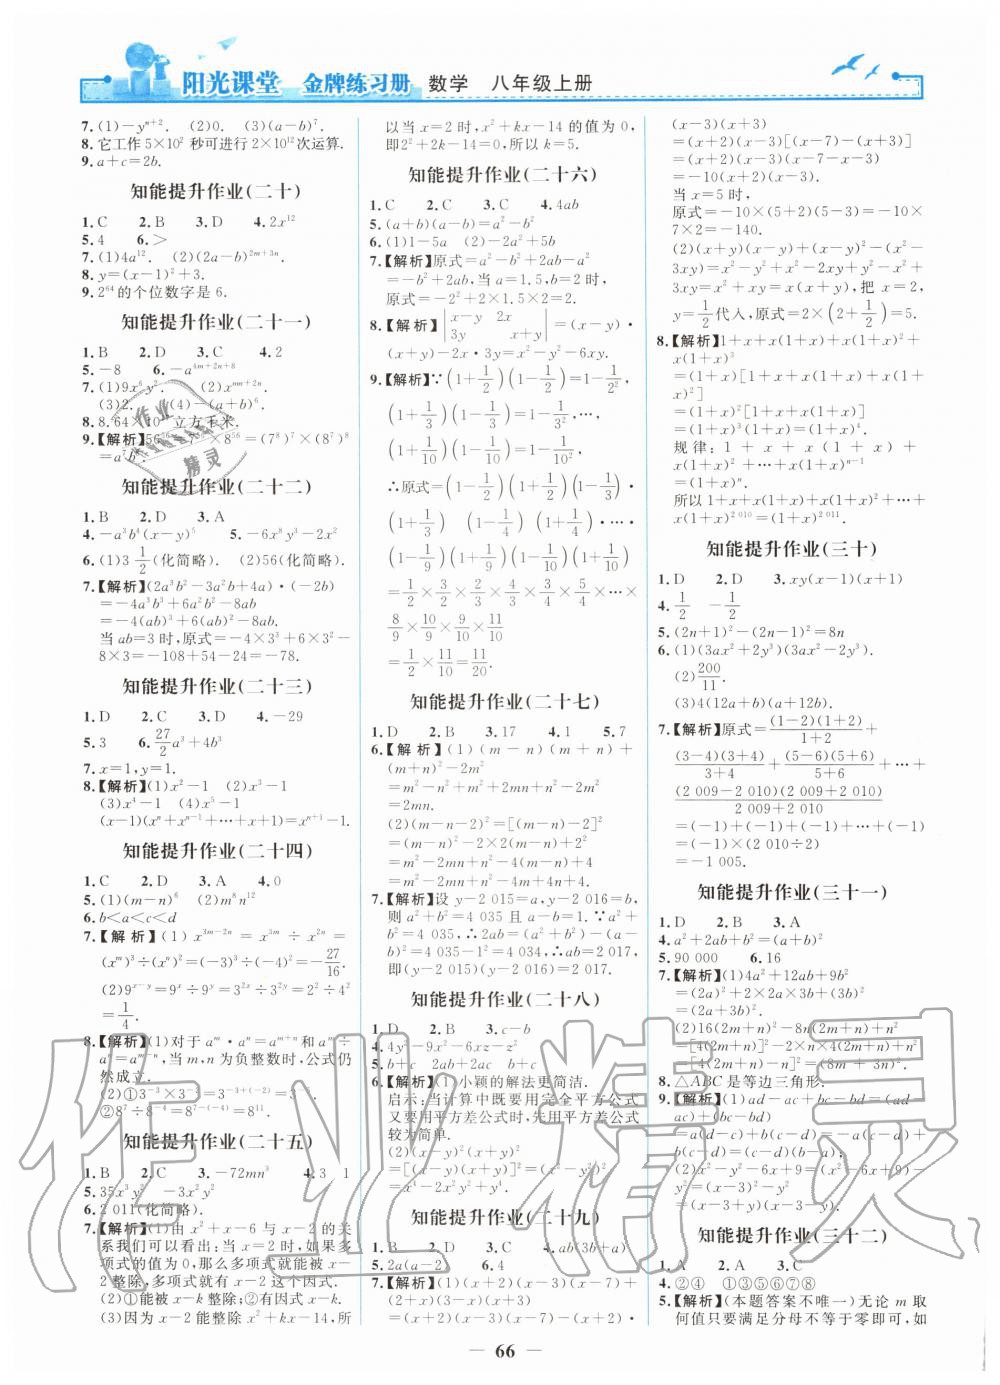 阳光课堂 金牌练习册 数学 八年级上册
7.(1)-yⁿ⁺². (2)0. (3)(a-b)⁷.
8.它工作5×10² 秒可进行2×10¹²次运算.
9.a+c=2b.
知能提升作业(二十)
1.C 2.B 3.D 4.2x¹²
5.4 6.>
7.(1)4a¹². (2)(2a-b)²ᵐ⁺³ⁿ.
8.y=(x-1)²+3.
9.2⁶⁴的个位数字是6.
知能提升作业(二十一)
1.B 2.D 3.C 4.2
5.-8 6.-a⁴ᵐ⁺²ⁿ⁺⁸
7.(1)9x⁶y². (2)xᵐⁿ⁺²ⁿ.
(3)2. (4)-(a+b)⁶.
8.8.64×10 立方千米.
9.【解析】56⁵⁶=7⁵⁶×8⁵⁶=(7⁸)⁷×(8⁷)⁸
=a⁷b⁸.
知能提升作业(二十二)
1.B 2.D 3.A
4.-a³b⁴(x-y)⁵ 5.-6x⁸y³-2x²
6.(1)3 1/2(化简略). (2)56(化简略).
7.【解析】(2a³b²-3a²b+4a)·(-2b)
=-4a³b³+6a²b²-8ab
=-4(ab)³+6(ab)²-8ab
当ab=3时,原式=-4×3³+6×3²-
8×3=-108+54-24=-78.
知能提升作业(二十三)
1.D 2.C 3.D 4.-29
5.3 6.27/2a³+4b³
7.x=1,y=1.
8.【解析】(1)x²-1 (2)x³-1
(3)x⁴-1 (4)x⁵-1
(x-1)(xⁿ+xⁿ⁻¹+…+x+1)=xⁿ⁺¹-1.
知能提升作业(二十四)
1.C 2.D 3.A 4.0
5.(1)(m-n)⁶ (2)m⁹n⁵
6.b<a<c<d
7.【解析】(1)x³ᵐ⁻²ⁿ=x³ᵐ÷x²ⁿ=
(xᵐ)³÷(xⁿ)²=(-3)³÷(-4)²=-27/16.
(2)9ˣ⁻ʸ=9ˣ÷9ʸ=3²ˣ÷3²ʸ=
1/4.
8.【解析】(1)对于aᵐ·aⁿ=aᵐ⁺ⁿ和aᵐ÷
aⁿ=aᵐ⁻ⁿ,当m,n为负整数时,公式仍
然成立.
(2)①3⁻³×3⁻²=3⁻³⁺⁽⁻²⁾=3⁻⁵.
②8⁷÷8⁻⁴=8⁷⁻⁽⁻⁴⁾=8¹¹.
知能提升作业(二十五)
1.B 2.C 3.-72mn³ 4.3 1
5.35x³y² -3x²y²
6.2 011(化简略).
7.【解析】(1)由x²+x-6与x-2的关
系我们可以看出:当x=2时,如果多
项式的值为0,那么多项式能被x-2
整除,多项式就有x-2这个因式.
(2)①能被x-k整除;②有因式x-k.
(3)因为x-2能整除x²+kx-14,所
以当x=2时,x²+kx-14的值为0,
即2²+2k-14=0,所以k=5.
知能提升作业(二十六)
1.C 2.C 3.C 4.4ab
5.(a+b)(a-b)=a²-b²
6.(1)1-5a (2)-2a²+5b
7.【解析】原式=a²-b²+2ab-a²
=-b²+2ab,当a=1.5,b=2时,
原式=-2²+2×1.5×2=2.
8.【解析】|x-y 2x|
|3y x+y|=(x-y)·
(x+y)-2x·3y=x²-y²-6xy.
9.【解析】∵(1+1/2)(1-1/2)=1-1/2²,…,
(1+1/3)(1-1/3)=1-1/3²,…,
(1+1/10)(1-1/10)=1-1/10²,
∴原式=(1-1/2)(1+1/2)(1-1/3)·
(1+1/3) (1-1/4) (1+1/4)·…·
(1-1/9)(1+1/9)(1-1/10)(1+1/10)
=1/2×3/2×2/3×4/3×3/4×5/4×…×
8/9×10/9×9/10×11/10
=1/2×11/10=11/20.
知能提升作业(二十七)
1.D 2.B 3.17 4.1 5.7
6.【解析】(1)(m-n)(m+n)+
(m+n)²-2m²
=m²-n²+m²+2mn+n²-2m²
=2mn.
(2)(m-n-2)²=[(m-n)-2]²
=(m-n)²-2×2(m-n)+2²
=m²-2mn+n²-4(m-n)+4
=m²-2mn+n²-4m+4n+4
7.【解析】设y-2 015=a,y-2 016=b,
则a²+b²=4 035且a-b=1.∵a²+b²
=4 035,∴2ab=(a²+b²)-(a-
b)²=4 035-1=4 034,∴ab=2 017,
即(y-2 015)(y-2 016)=2 017.
知能提升作业(二十八)
1.D 2.B 3.c-b
4.4y²-9x²-6xz-z²
5.b+c 2ab+2ac b+c
6.【解析】(1)小颖的解法更简洁.
启示:当计算中既要用完全平方公式
又要用平方差公式时,先用平方差公式
较为简单.
知能提升作业(二十九)
1.B 2.D 3.C 4.ab(3b+a)
5.2a(a-2) 6.4
7.【解析】(1)(x+2)(x-3)(x-7)+
(2+x)(3-x)(x+3)
=(x+2)(x-3)(x-7)-(x+2)
(x-3)(x+3)
=(x+2)(x-3)[(x-7)-(x+3)]
=(x+2)(x-3)(x-7-x-3)
=-10(x+2)(x-3).
当x=5时,
原式=-10×(5+2)(5-3)=-10×
7×2=-140.
(2)(x+y)(x-y)+(x-y)²-(x²-
3xy)=x²-y²+x²-2xy+y²-x²+
3xy=x²+xy=x(x+y),把x=2,
y=1/2代入,原式=2×(2+1/2)=5.
8.【解析】1+x+x(1+x)+x(1+x)²+
x(1+x)³
=(1+x)[1+x+x(1+x)+x(1+
x)²]
=(1+x)²[1+x+x(1+x)]
=(1+x)³(1+x)=(1+x)⁴.
规律:1+x+x(1+x)+
x(1+x)²+…+x(1+x)ⁿ⁻¹
=(1+x)ⁿ.
所以1+x+x(1+x)+x(1+x)²+…+
x(1+x)²⁰¹⁰=(1+x)²⁰¹¹.
知能提升作业(三十)
1.D 2.D 3.xy(x-1)(x+1)
4.1/2 -1/2
5.(2n+1)²-(2n-1)²=8n
6.(1)(3ax²+2y³)(3ax²-2y³).
(2)200/11.
(3)4(12a+b)(a+12b).
7.【解析】原式=(1-2)(1+2)/1+2+
(3-4)(3+4)/3+4+(5-6)(5+6)/5+6+…+
(2 009-2 010)(2 009+2 010)/2 009+2 010
=(-1)+(-1)+(-1)+…+(-1)
=(-1)×(2 010÷2)
=-1 005.
知能提升作业(三十一)
1.D 2.B 3.A
4.a²+2ab+b²=(a+b)²
5.90 000 6.16
7.【解析】(1)4a²+12ab+9b²
=(2a)²+2×2a×3b+(3b)²
=(2a+3b)².
(2)16(2m+n)²-8n(2m+n)+n²
=[4(2m+n)]²-2×4(2m+n)×n+n²
=[4(2m+n)-n]²=(8m+3n)².
8.△ABC是等边三角形.
9.【解析】(1)ad-ac+bc-bd=(ad-
ac)+(bc-bd)
=a(d-c)+b(c-d)=-a(c-d)+
b(c-d)=(c-d)(b-a).
(2)x²-y²-6x+9=(x²-6x+9)-
y²=(x-3)²-y²
=(x-3+y)(x-3-y).
知能提升作业(三十二)
1.A 2.A 3.C
4.②④ ①③⑤⑥⑦⑧
5.【解析】(本题答案不唯一)无论m取
何值只要满足分母不等于零即可,如
66
作业精灵
作业
精灵